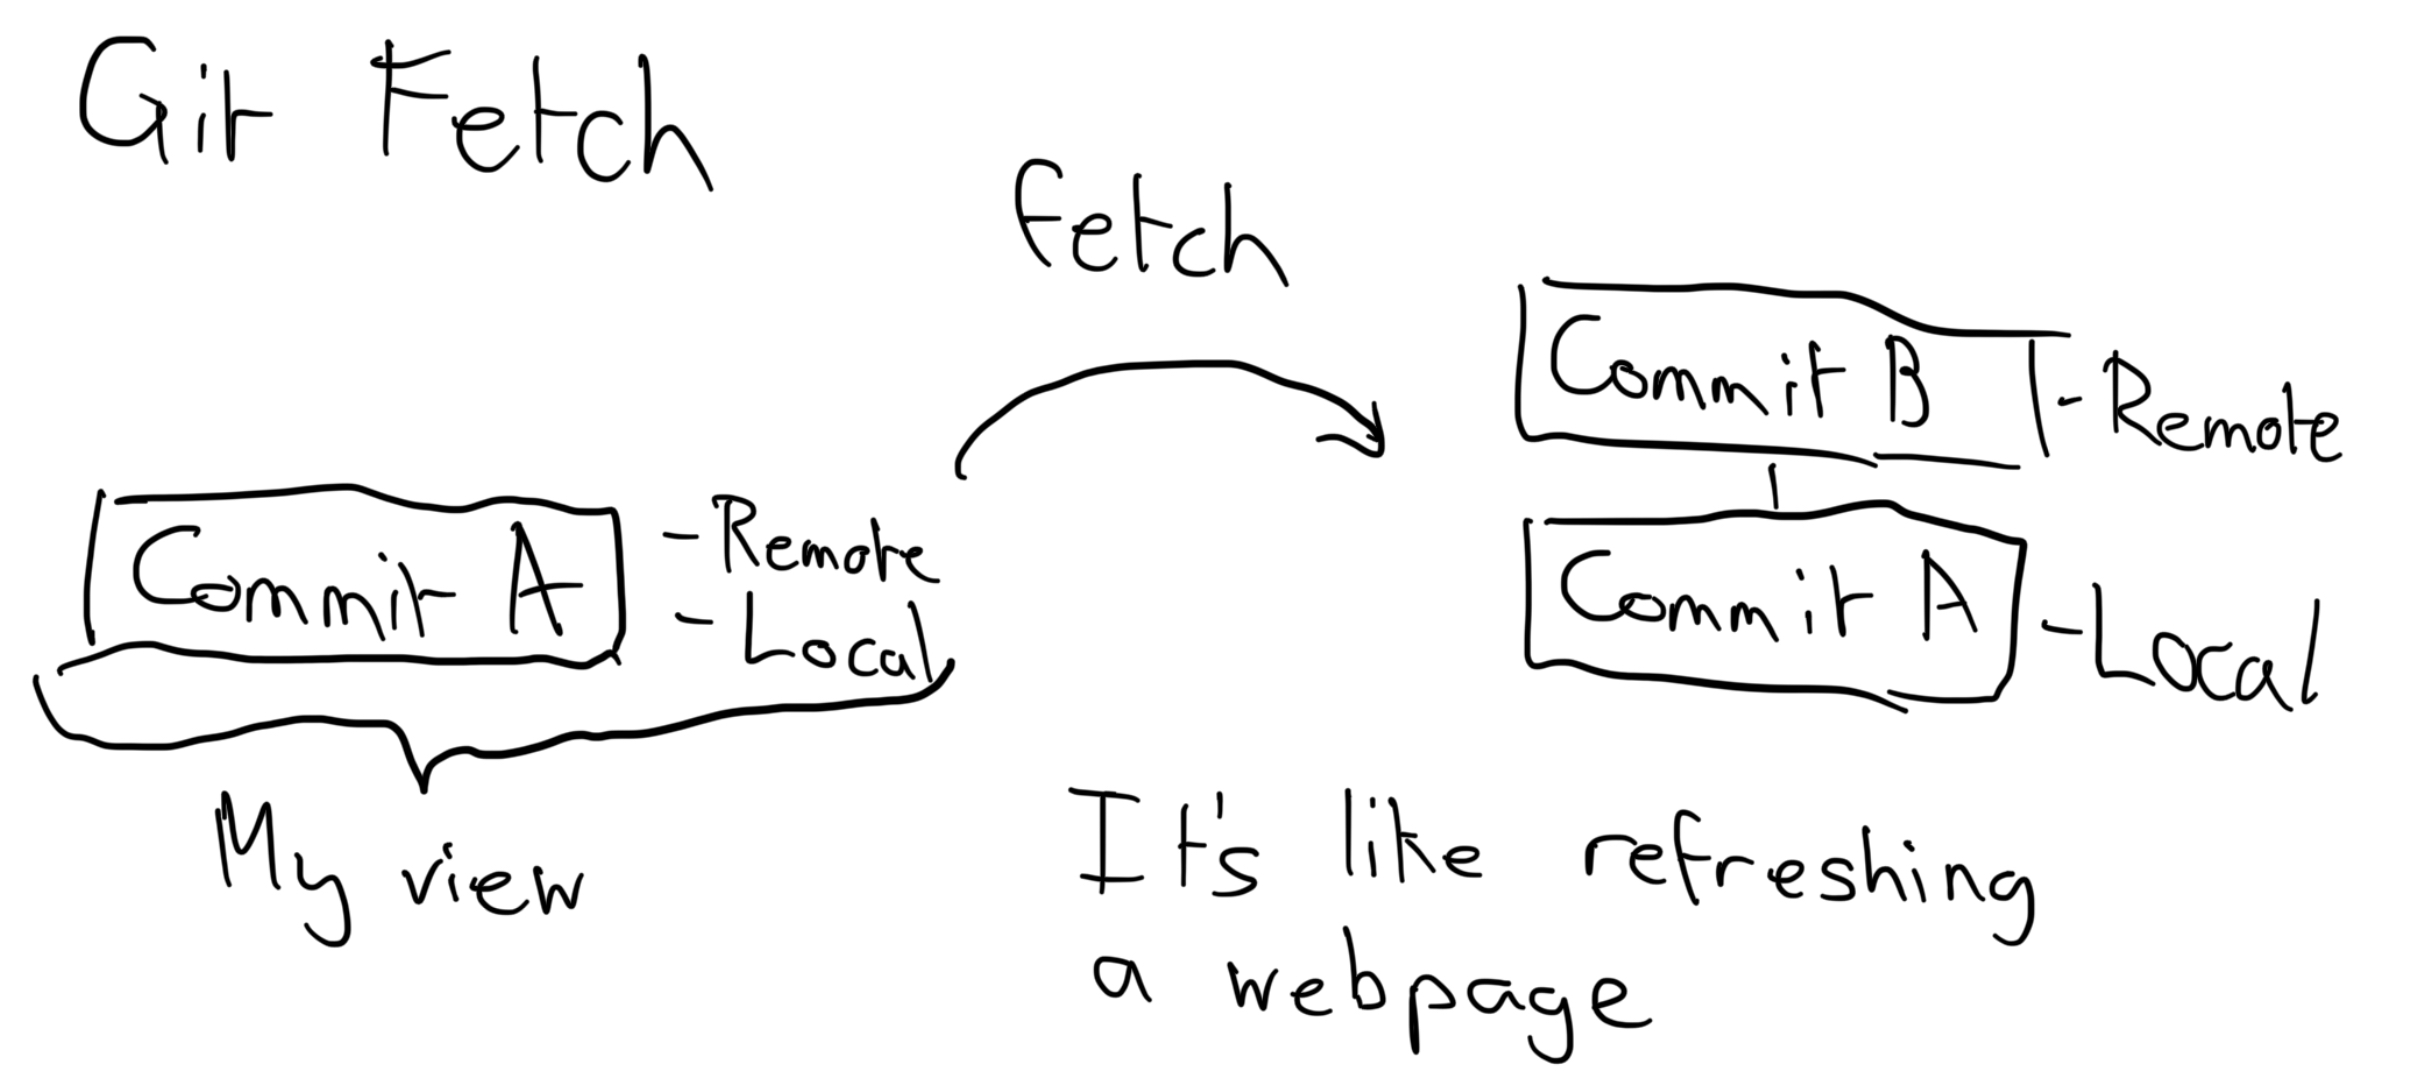 Git Fetch
fetch
Commit A
- Remote
- Local
My view
Commit B - Remote
Commit A - Local
It's like refreshing
a webpage